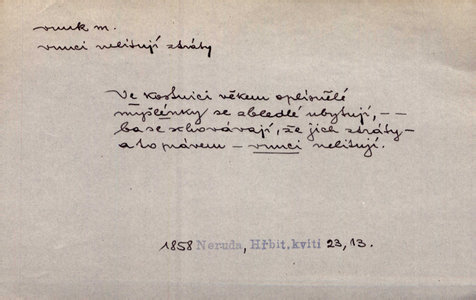 vnuk m.
vnuci nelitují ztráty
Ve kostnici věkem oplisnělé
myšlénky se zbledlé ubytují, --
ba se schovávají, že jich ztráty -
a to právem - vnuci nelitují.
1858 Neruda, Hřbit.kvítí 23, 13.